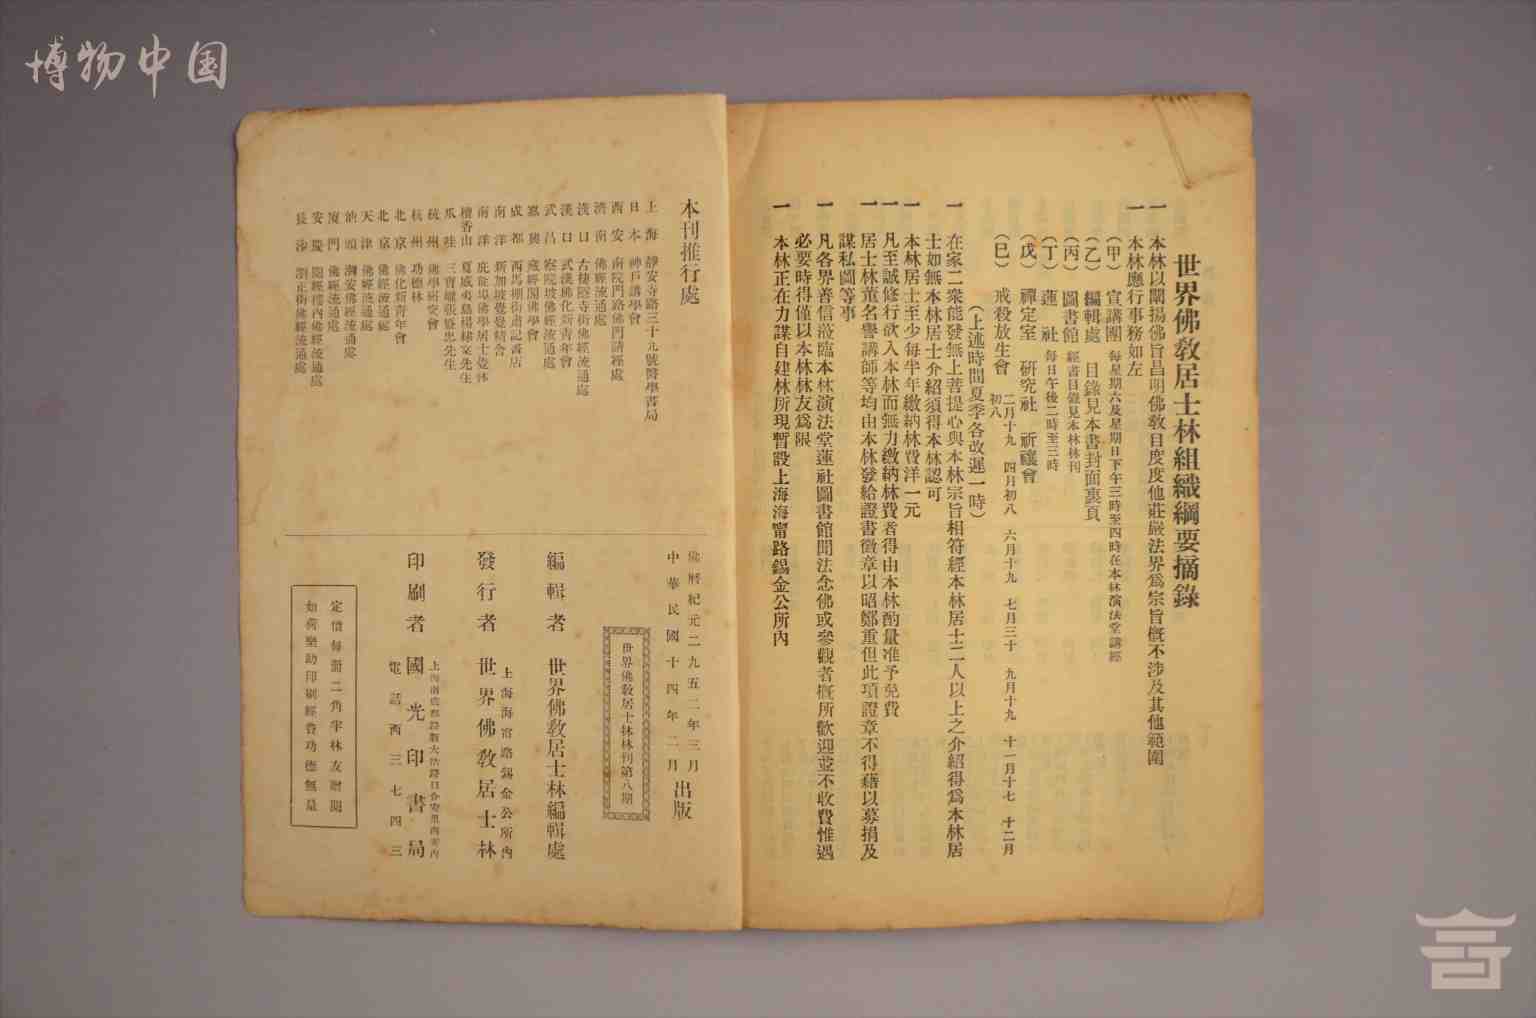 博物中国
世界佛敎居士林組織綱要摘錄
一 本林以闡揚佛旨昌明佛敎自度度他莊嚴法界爲宗旨槪不涉及其他範圍
一 本林應行事務如左
（甲） 宣講團 每星期六及星期日下午三時至四時在本林演法堂講經
（乙） 編輯處 目錄見本書封面裏頁
（丙） 圖書館 經書目錄見本林林刊
（丁） 蓮社 每日午後二時至三時
（戊） 禪定室 硏究社 祈禳會
（巳） 戒殺放生會 二月十九 四月初八 六月十九 七月三十 九月十九 十一月十七 十二月
初八
（上述時間夏季各改遲一時）
一 在家二衆能發無上菩提心與本林宗旨相符經本林居士二人以上之介紹得爲本林居
士如無本林居士介紹須得本林認可
一 本林居士至少每半年繳納林費洋一元
一 凡至誠修行欲入本林而無力繳納林費者得由本林酌量准予免費
一 居士林董名譽講師等均由本林發給證書徽章以昭鄭重但此項證章不得藉以募捐及
謀私圖等事
一 凡各界善信蒞臨本林演法堂蓮社圖書館聞法念佛或參觀者槪所歡迎並不收費惟遇
必要時得僅以本林林友爲限
一 本林正在力謀自建林所現暫設上海海甯路錫金公所內
本刊推行處
上海 靜安寺路三十九號醫學書局
日本 神戶講學會
西安 南院門路佛門請經處
濟南 佛經流通處
漢口 古棲隱寺街佛經流通處
漢口 武漢佛化新靑年會
武昌 察院坡佛經流通處
嘉興 藏經閣佛學會
成都 西馬棚街肅記書店
南洋 新加坡覺覺精舍
南洋 庇能埠佛學居士林
檀香山 夏威夷島楊棣棠先生
爪哇 三寶壠張曁忠先生
杭州 佛學硏究會
杭州 功德林
北京 佛化新靑年會
北京 佛經流通處
天津 佛經流通處
汕頭 潮安佛經流通處
廈門 佛經流通處
安慶 閱經樓內佛經流通處
長沙 劉正街佛經流通處
佛曆紀元二九五二年三月
中華民國十四年二月
出版
世界佛敎居士林林刊第八期
編輯者 世界佛敎居士林編輯處
上海海甯路錫金公所內
發行者 世界佛敎居士林
印刷者 國光印書局
電話西三七四三
定價每冊二角半林友贈閱
如荷樂助印刷經費功德無量